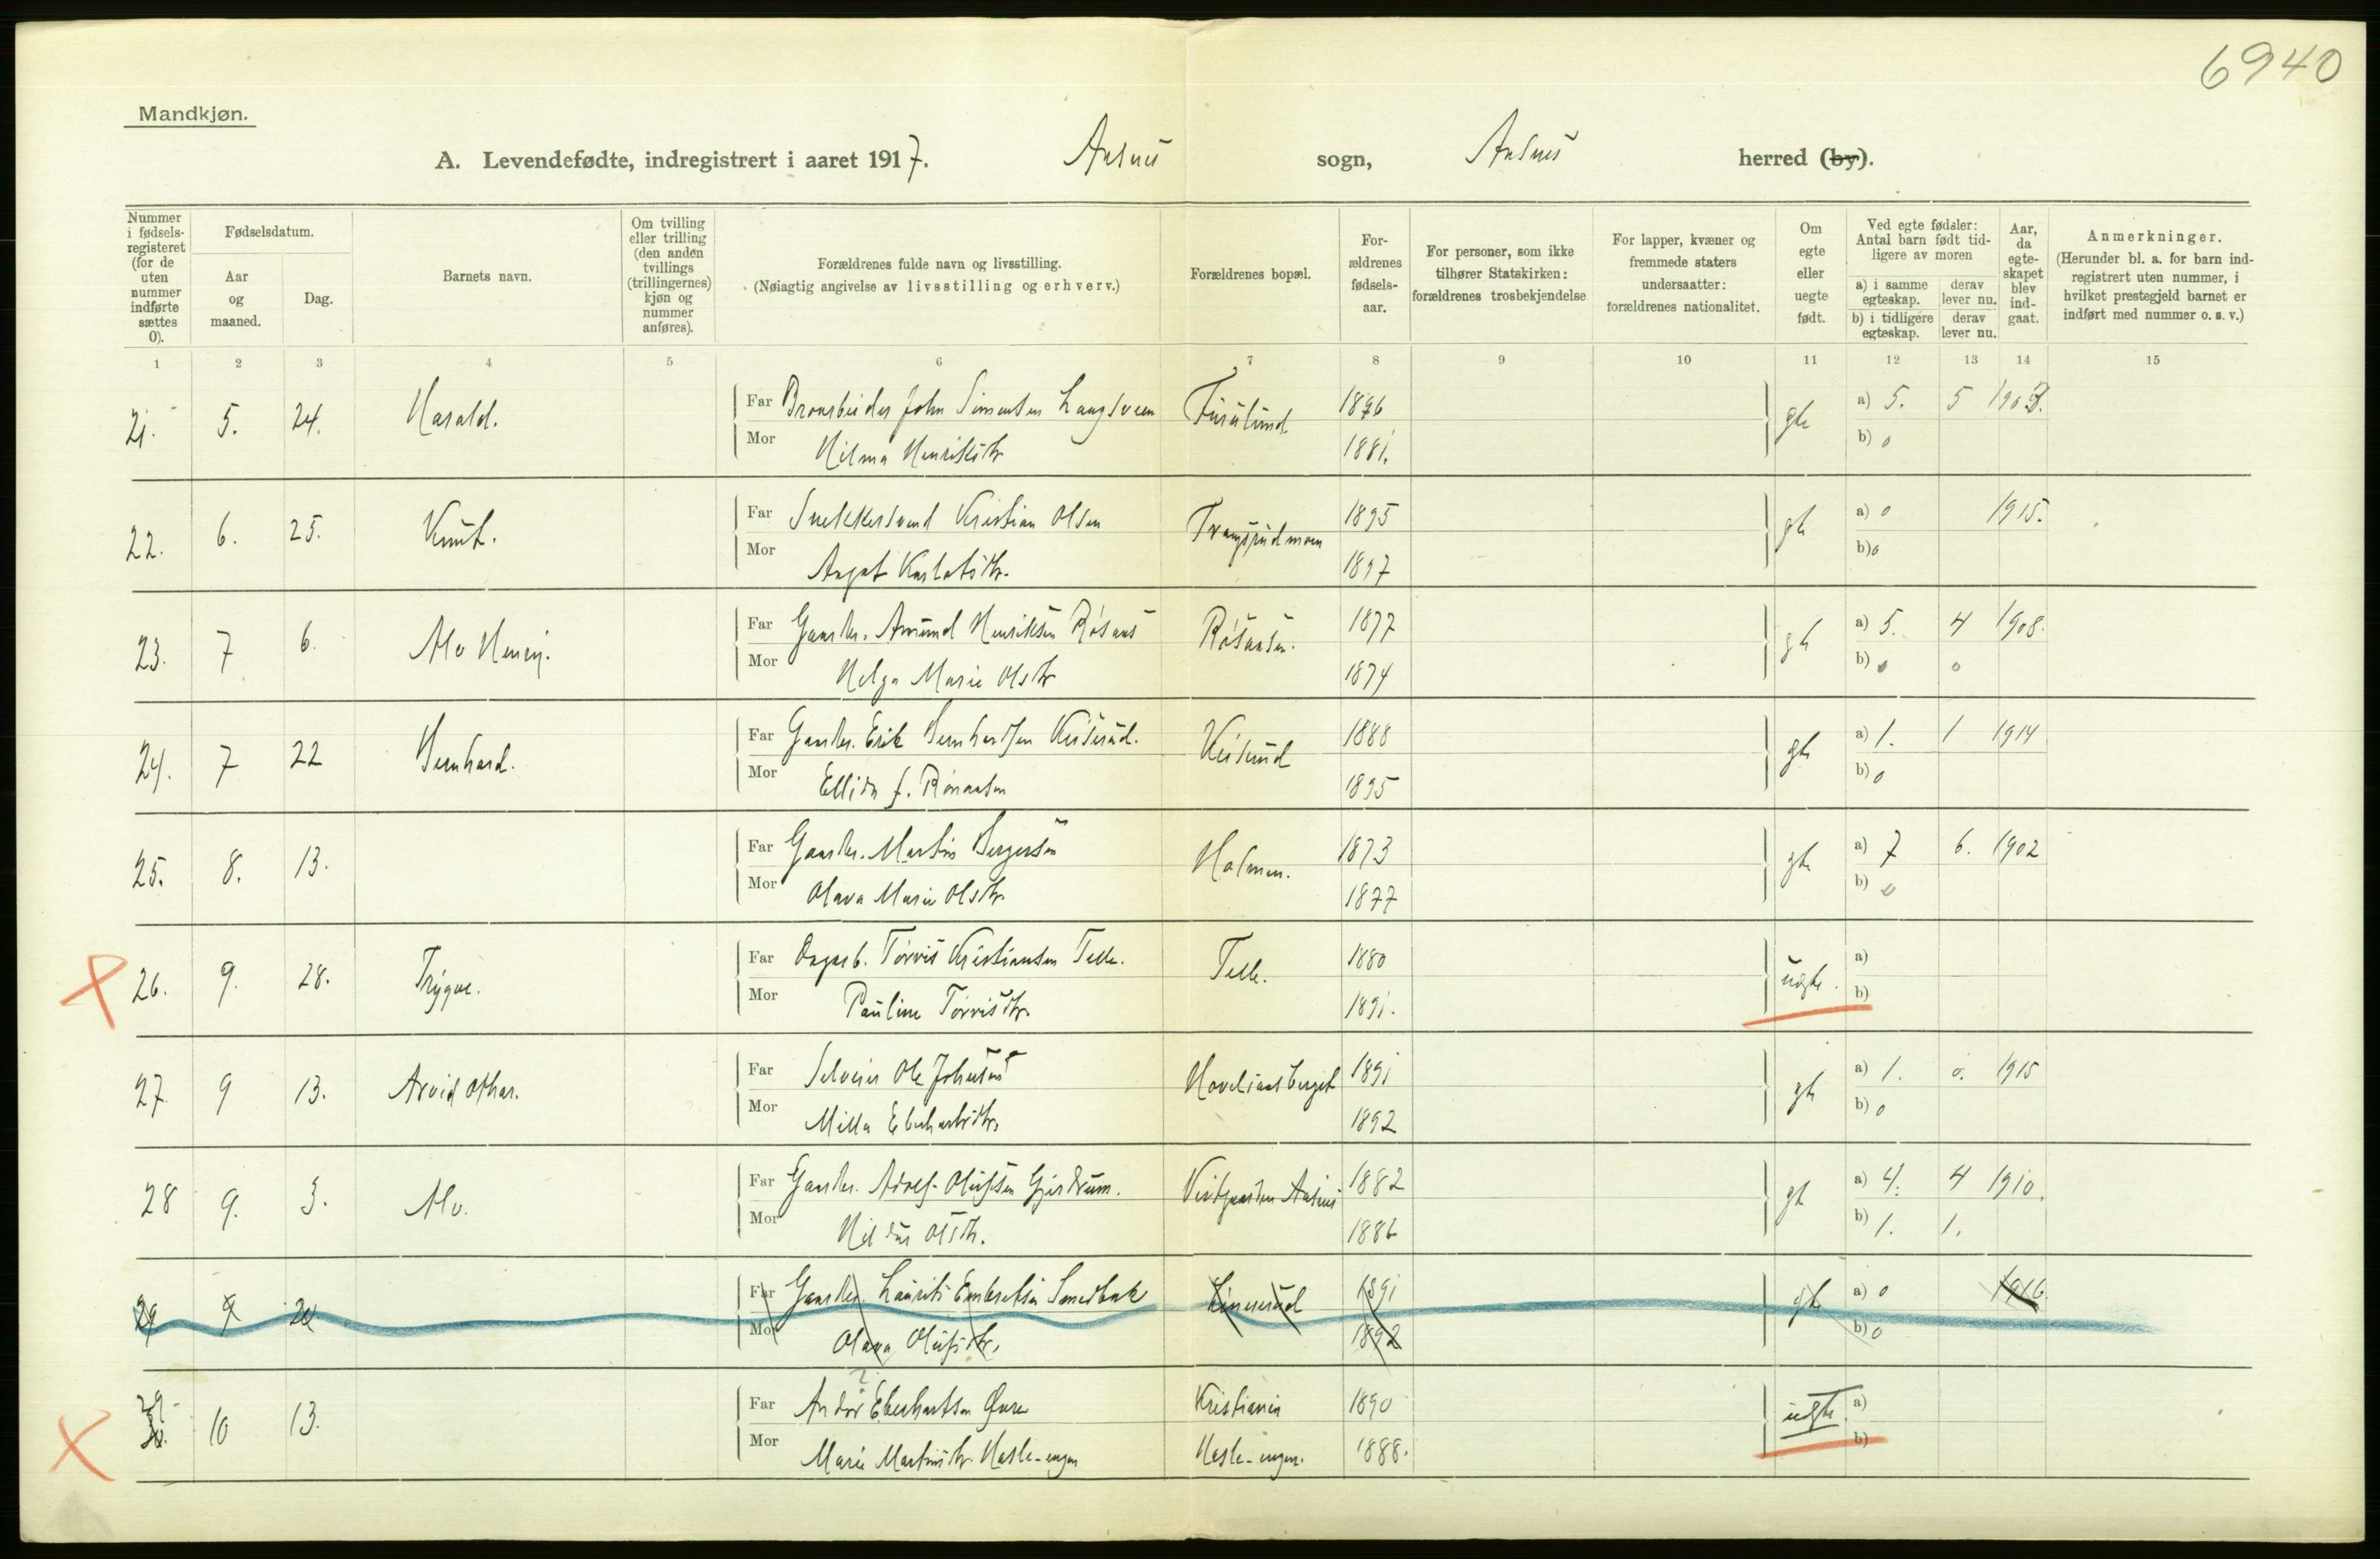 6940
Mandkjøn.
A. Levendefødte, indregistrert i aaret 1917. Aasnes sogn, Aasnes herred (by).
Nummer i fødselsregisteret (for de uten nummer indførte sættes 0).
Fødselsdatum.
Aar og maaned.
Dag.
Barnets navn.
Om tvilling eller trilling (den anden tvillings (trillingernes) kjøn og nummer anføres).
Forældrenes fulde navn og livsstilling.
(Nøiagtig angivelse av livsstilling og erhverv.)
Forældrenes bopæl.
Forældrenes fødselsaar.
For personer, som ikke tilhører Statskirken: forældrenes trosbekjendelse
For lapper, kvæner og fremmede staters undersaatter: forældrenes nationalitet.
Om egte eller uegte født.
Ved egte fødsler: Antal barn født tidligere av moren
a) i samme egteskap.
derav lever nu.
b) i tidligere egteskap.
derav lever nu.
Aar, da egteskapet blev indgaat.
Anmerkninger.
(Herunder bl. a. for barn indregistrert uten nummer, i hvilket prestegjeld barnet er indført med nummer o. s. v.)
1 2 3 4 5 6 7 8 9 10 11 12 13 14 15
21. 5. 24. Harald. Far John Simensen Langsveen Furulund. 1876 gte a) 5. 5 1903.
Mor Hilma Henriksdtr 1881. b) 0
22. 6. 25. Knut. Far Snekkersvend Kristian Olsen 1895 gte a) 0 1915.
Mor Karlotsdtr. 1897 b) 0
23. 7 6. Alv Henry. Far Gaardbr. Amund Henriksen Røsaas Røsaasen. 1877 gte a) 5. 4 1908.
Mor Helga Marie Olsdtr 1874 b) 0 0
24. 7 22 Bernhard. Far Gaardbr. Erik Bernhardsen Keiserud. Keiserud 1888 gte a) 1. 1 1914
Mor Ellida f. Rønaasen 1895 b) 0
25. 8. 13. Far Gaardbr. Martin Bergersen Holmen. 1873 gte a) 7 6. 1902
Mor Olava Marie Olsdtr. 1877 b) 0
26. 9. 28. Trygve. Far Dagarb. Torvis Kristiansen Telle. Telle. 1880 uegte. a)
Mor Pauline Torvisdtr. 1891. b)
27. 9 13. Arvid Othar. Far Ole Johnsen 1891 gte a) 1. 0. 1915
Mor Milla Eberhartsdtr. 1892 b) 0
28 9. 3. Alv. Far Gaardbr. Adolf Olufsen Gjerdrum. Vestgaarden Aasnes 1882 gte a) 4. 4 1910.
Mor Hilda Olsdtr. 1886 b) 1. 1.
29 9 20 Far Gaardbr. Laurits Embretsen Smedbak Linnerud 1891 gte a) 0 1916.
Mor Olava Olufsdtr. 1892 b) 0
29. 30. 10 13. Far Andor Eberhartsen Kristiania 1890 uegte. a)
Mor Marie Martinsdtr. Hasle-engen Hasle-engen. 1888. b)